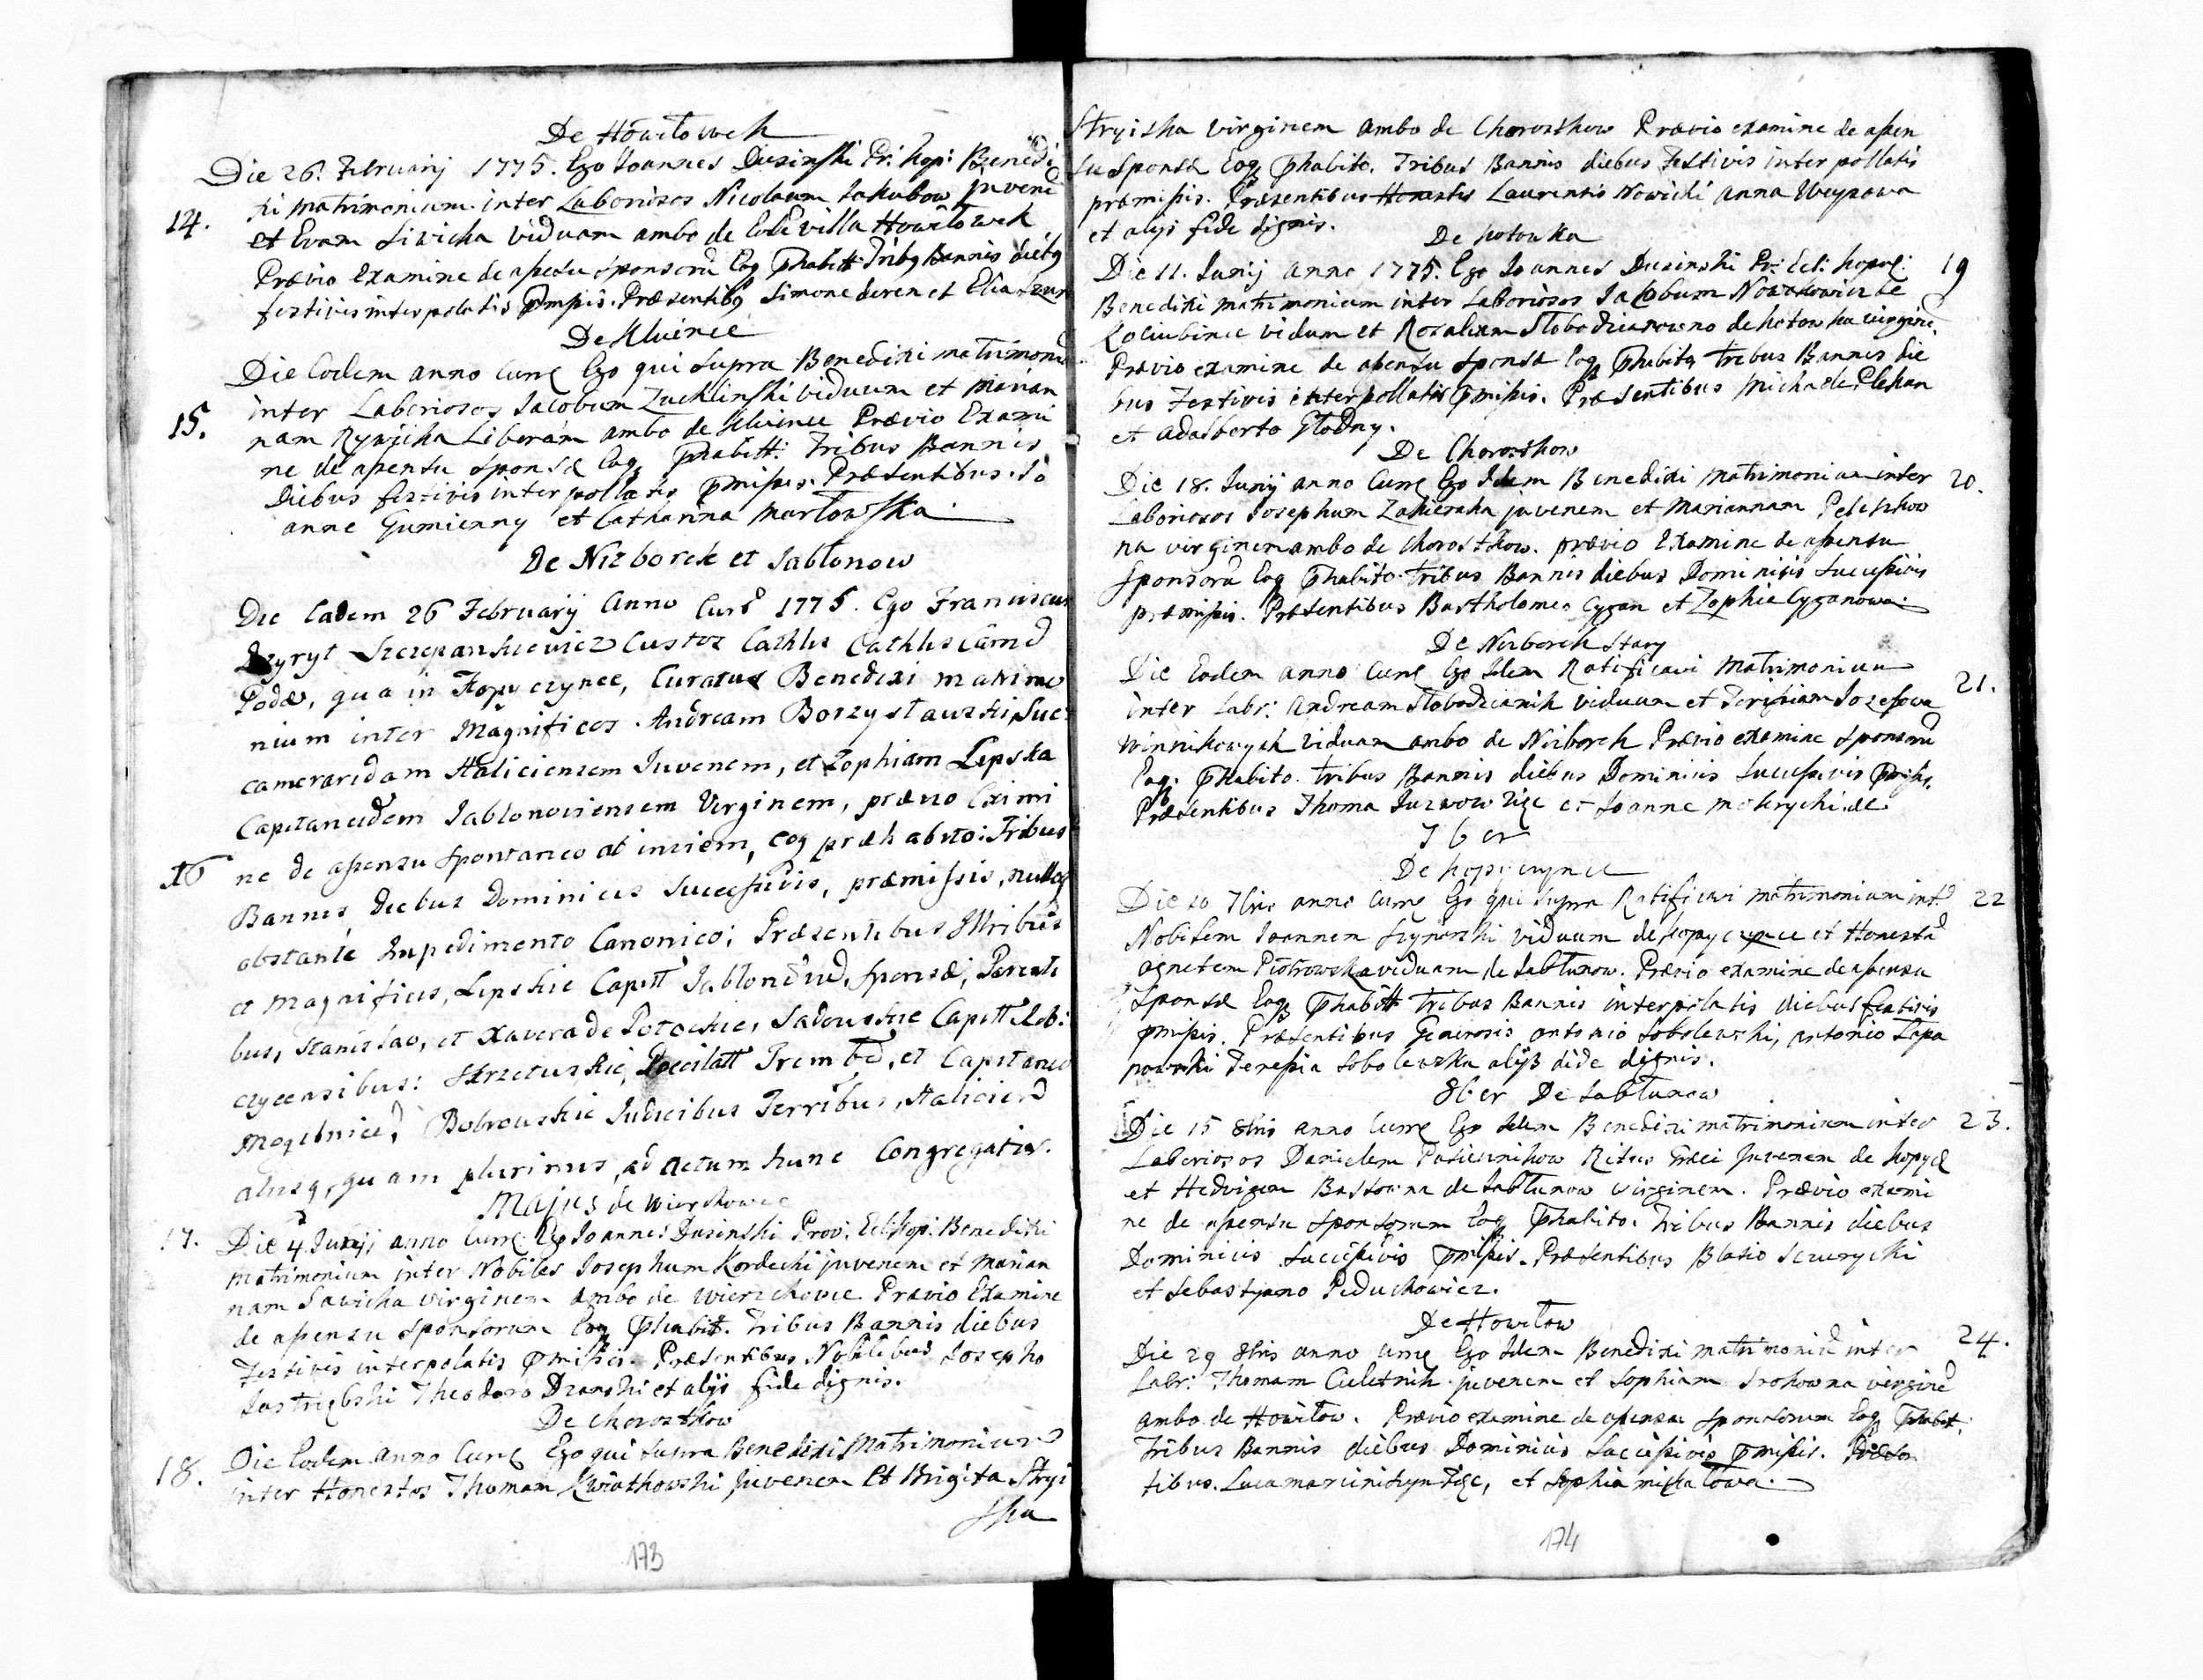 De Howiłowek
Die 26. Februarij 1775. Ego Joannes Duzinski Pr: Kop: Benedi
xi matrimonium inter Laboriosos Nicolaum Jakubow juvene
14.
et Evam Siwicka viduam ambo de Eode villa Howiłowek
Prævio Examine de assensu sponsorũ Eoq phabitt Tribq Bannis diebq
festivis interpolatis pmissis. Præsentibq Simone deren et Elia
De Kluince
Die Eodem anno Curre Ego qui supra Benedixi matrimoniũ
inter Laboriosos Jacobum Zuchlinski viduum et Marian
15.
nam Rywicka Liberam ambo de Kluince Prævio Exami
ne de assensu Sponsæ Eoq phabitt: Tribus Bannis
Diebus festivis interpollatis pmissis. Præsentibus Jo
anne Gumienny et Catharina Martowska
De Nizborek et Jabłonow
Die Eadem 26 February Anno Curr 1775. Ego Franciscus
Szczepankiewicz Custos Cathlis Cathlis Camd
Podæ, qua in Kopyczynce, Curatus Benedixi matrimo
nium inter Magnificos Andream Borzystawski Suc
cameraridam Haliciensem Juvenem, et Zophiam Lipska
Capitaneidem Jablonoviensem Virginem, prævio Exami
16
ne de assensu spontaneo at insiem, eoq præhabito: Tribus
Bannis diebus Dominicis Successivis, præmissis, nulloq
obstante Impedimento Canonico; Præsentibus Illribus
et Magnificis, Lipskie Capitt Jablond, Sponsæ, Parenti
bus, Stanislao, et Xavera de Potockie, Sadowskie Capitt Slob:
czycensibus: Skrzetuskie, Trembd, et Capitaneo
Mogilnicd, Bobrowskie Judicibus Terribus, Haliciend
alysq, quam plurimis, ad actum hunc Congregatis.
Majus de Wierzchowce
17.
Die 4 Junij anno Curre Ego Joannes Dusinski Prov: Ecl: Kop: Benedixi
matrimonium inter Nobiles Josephum Kordecki juvenem et Marian
nam Sawicka virginem ambo de Wierzchowce Prævio Examine
de assensu sponsorum Eoq phabitt. Tribus Bannis diebus
Festivis interpolatis pmissis. Præsentibus Nobilibus Josepho
Jastrzębski Theodoro Dzanski et alijs fide dignis.
De Chorostkow
18.
Die Eodem anno Curre Ego qui supra Benedixi Matrimonium
inter Honestos Thomam Kwiatkowski juvenem et Brigita Stryi
ska
173
Stryiska virginem ambo de Chorostkow Prævio examine de assen
su Sponsæ Eoq phabito. Tribus Bannis diebus Festivis interpollatis
præmissis. Præsentibus Honestis Laurentio Nowicki Anna Weyssowa
et alijs fide dignis.
De Kotowka
Die 11. Junij anno 1775. Ego Joannes Dusinski Pr: Ecl: Kopy:
19
Benedixi matrimonium inter Laboriosos Jacobum Nowakowicz de
Kociubince viduum et Rosaliam Słobodzianowno de Kotowka virgine
Prævio examine de assensu Sponsæ Eoq phabito Tribus Bannis die
bus Festivis interpollatis pmissis. Præsentibus Michaele Pleban
et Adalberto Głodny.
De Chorostkow
Die 18. Junij anno Curre Ego Idem Benedixi Matrimonium inter
20.
Laboriosos Josephum Zakieraka juvenem et Mariannam Peleszkow
na virginem ambo de Chorostkow. prævio Examine de assensu
Sponsorũ Eoq phabito Tribus Bannis diebus Dominicis Successivis
præmissis. Præsentibus Bartholomeo Cygan et Zophia Cyganowa
De Nizborek Stary
Die Eodem anno Curre Ego Idem Ratificavi Matrimonium
21.
inter Labr: Andream Słobodzianik viduum et Teressiam Jozefowa
Winnikowych viduam ambo de Nizborek Prævio examine sponsorũ
Eoq. phabito Tribus Bannis diebus Dominicis Successivis pmiss.
Præsentibus Thoma Juzwow Tige et Joanne Mokrycki de
7ber
De Kopyczynce
Die 10 7bris anno Curre Ego qui supra Ratificavi matrimonium intr
22
Nobilem Joannem Szynanski viduum de Kopyczynce et Honestã
Agnetem Piotrowska viduam de Jabłunow. Prævio examine de assensu
Sponsæ Eoq phabitt Tribus Bannis interpolatis diebus festivis
pmissis. Præsentibus Generosis Antonio Sobolewski, Antonio Łopa
nowski Teressia Sobolewska alijs dide dignis.
8ber De Jabłunow
Die 15 8bris anno Curre Ego Idem Benedixi matrimonium inter
23.
Laboriosos Danielem Pasiecznikow Ritus Græci Juvenem de Kopycz
et Hedvigem Bastowna de Jabłunow virginem. Prævio exami
ne de assensu sponsorum Eoq phabito. Tribus Bannis diebus
Dominicis Successivis pmissis. Præsentibus Blasio Sczurycki
et Sebastyano Peduchowicz.
De Howiłow
Die 29 8bris anno curre Ego Idem Benedixi matrimoniũ inter
24.
Labr: Thomam Cieletnik juvenem et Sophiam Srokowna virginẽ
ambo de Howiłow. Prævio examine de assensu sponsorum Eoq phabit.
Tribus Bannis diebus Dominicis Successivis pmissis. Præsen
tibus. Luca Marcinickyn Tige, et Sophia Michałowa.
174